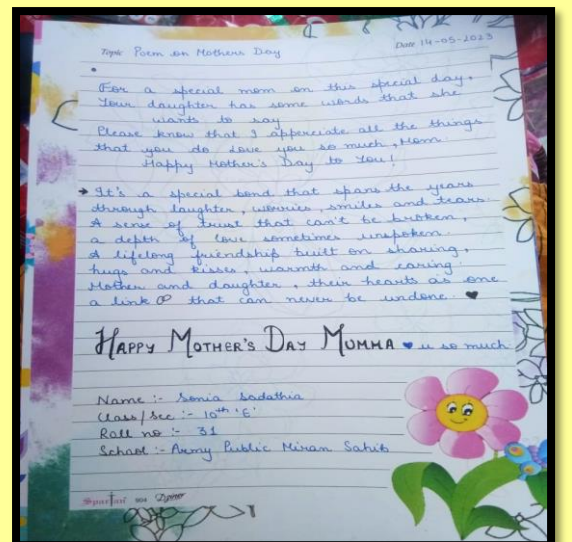 Topic Poem on Mothers Day
Date 14-05-2023
For a special mom on this special day,
Your daughter has some words that she
wants to say
Please know that I apperciate all the things
that you do Love you so much, Mom
Happy Mother's Day to You!
→ It's a special bond that spans the years
through laughter, worries, smiles and tears.
A sense of trust that can't be broken,
a depth of love sometimes unspoken.
A lifelong friendship built on sharing,
hugs and kisses, warmth and caring
Mother and daughter, their hearts as one
a link ∞ that can never be undone. ♥
HAPPY MOTHER'S DAY MUMMA ♥ u so much
Name :- Sonia Sadathia
Class/Sec :- 10th 'E'
Roll no :- 31
School :- Army Public Miran Sahib
Spartan 904